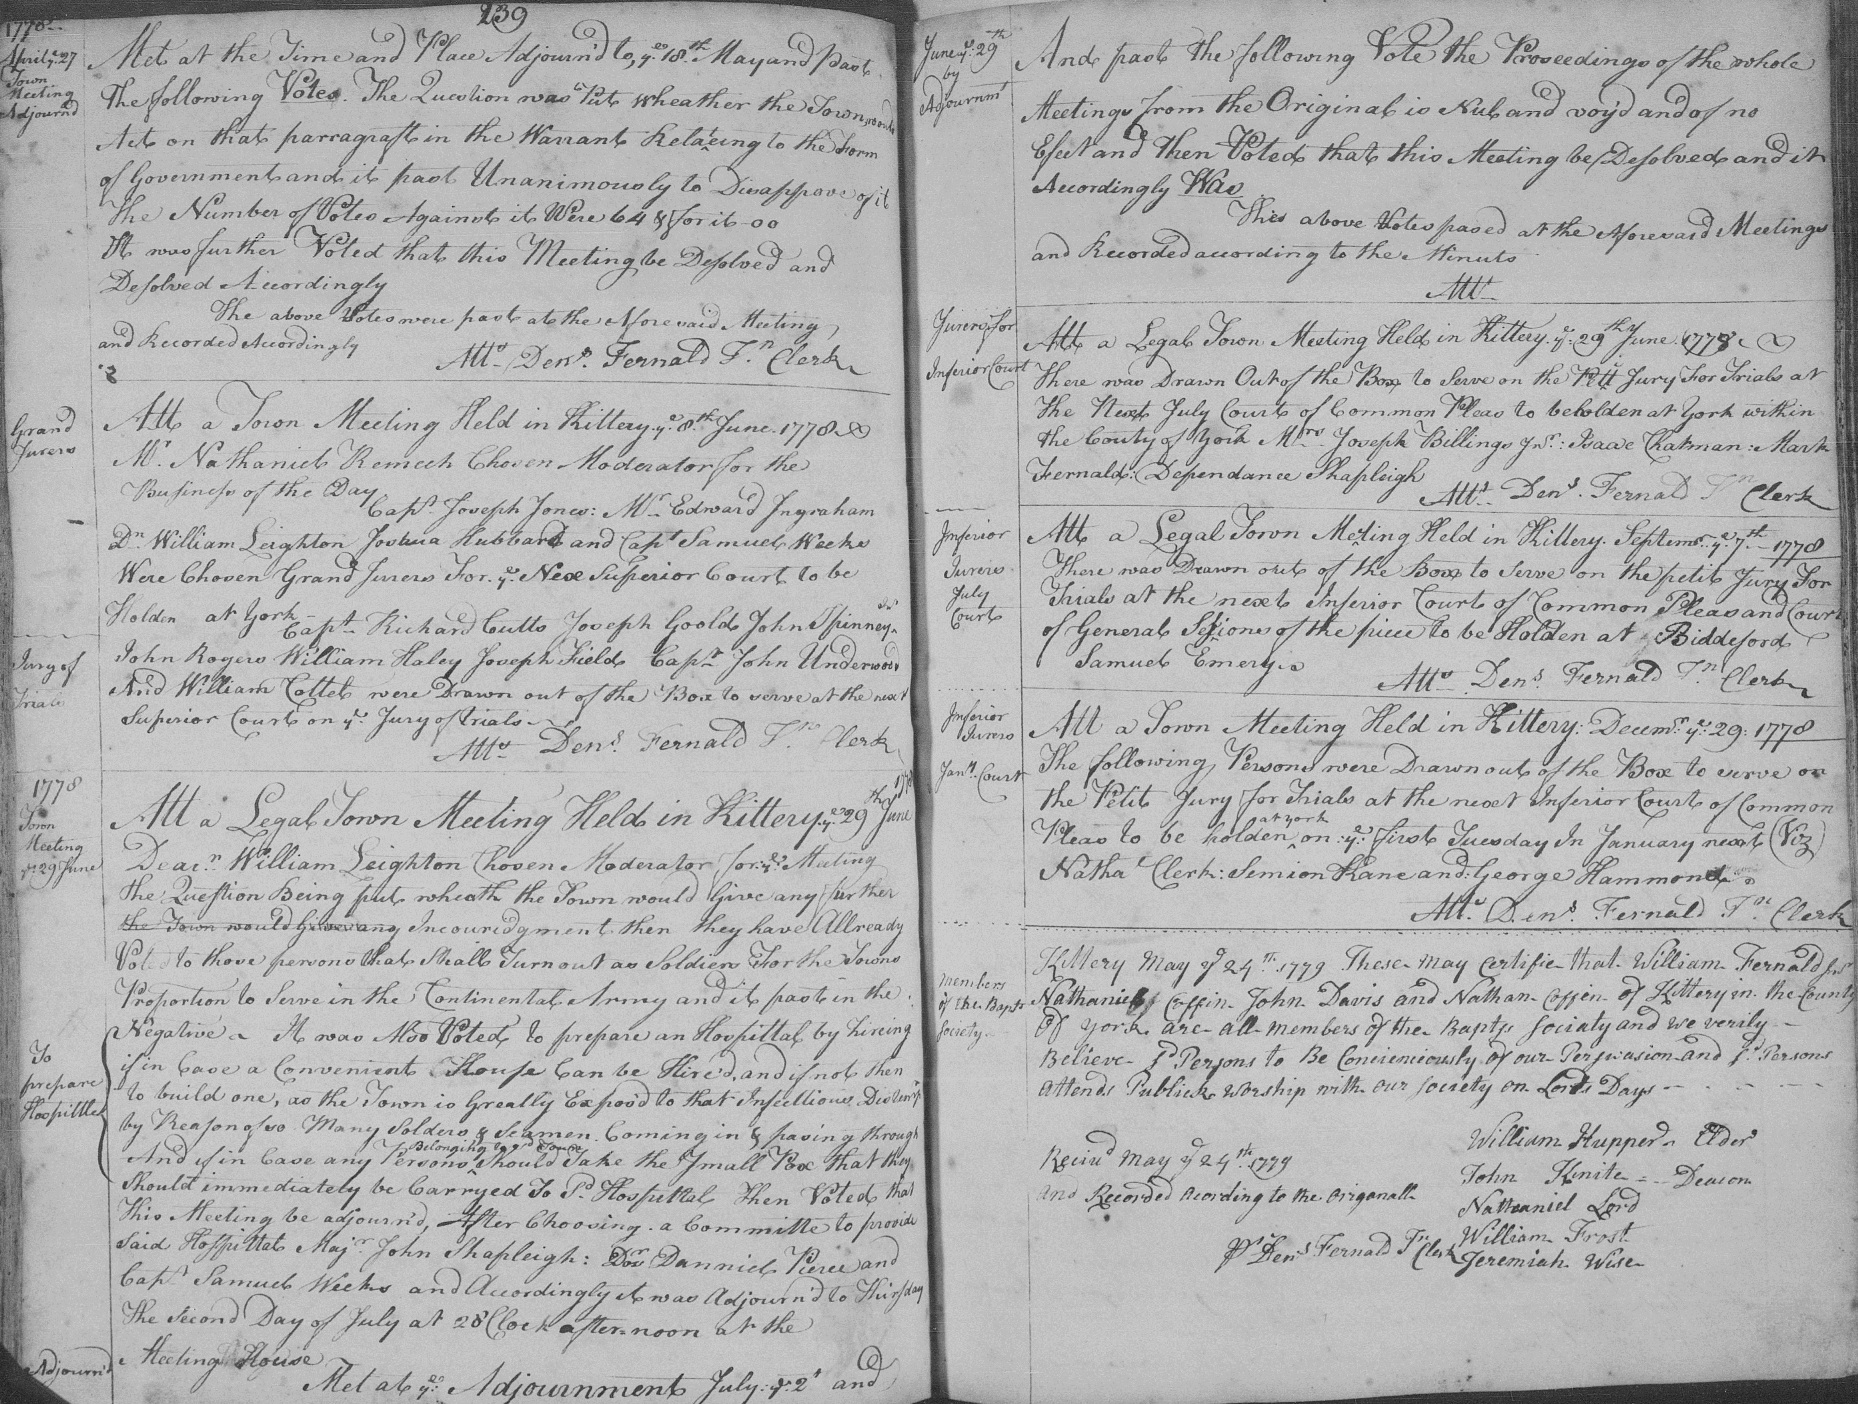 239
1778
April ye 27
Town
Meeting
Adjournd
Met at the Time and Place Adjournd to, ye 18th May and Past
The following Votes. The Question was Put wheather the Town would
Act on that parragraft in the Warrant Relateing to the Form
of Government and it past Unanimously to Disapprove of it
The Number of Votes Against it Were 64 & for it - 00
It was further Voted that this Meeting be Desolved and
Desolved Accordingly
The above Votes were past at the Aforesaid Meeting,
and Recorded Accordingly
Atts Dens Fernald Tn Clerk
Grand
Jurers
Att a Town Meeting Held in Kittery ye 8th June 1778
Mr Nathaniel Remech Chosen Moderator for the
Business of the Day
Capt Joseph Jones: Mr Edward Ingraham
Dn William Leighton Joshua Hubbard and Capt Samuel Weeks
Were Chosen Grand Jurers For ye Nex Superior Court to be
Holden at York
Jury of
Trials
Capt Richard Cutts Joseph Goold John Spinney Jnr
John Rogers William Haley Joseph Field Capt John Underwood
And William Tottel were Drawn out of the Box to serve at the next
Superior Court on ye Jury of trials
Atts Dens Fernald Tn Clerk
1778
Town
Meeting
ye 29 June
Att a Legal Town Meeting Held in Kittery ye 29th June 1778
Deacn William Leighton Chosen Moderator for ye Meeting
The Question Being put wheath the Town would Give any further
the Town would Give any Incouridgment then they have Allready
Voted to those persons that Shall Turn out as Soldiers For the Towns
Proportion to Serve in the Continental Army and it past in the
To
prepare
Hospittle
Negative It was Also Voted to prepare an Hospittal by hireing
if in Case a Convenient House Can be Hire'd, and if not then
to build one, as the Town is Greatly Expos'd to that Infectious Distempr
by Reason of so Many Solders & Seamen Coming in & pasing through
And if in Case any Persons Belonging to sd Town Should Take the Small Pox that they
Should immediately be Carryed To sd Hospittal Then Voted that
This Meeting be adjourn'd, After Choosing a Committe to provide
Said Hospittal Majr John Shapleigh: Dor Danniel Pierce and
Capt Samuel Weeks and Accordingly it was Adjourn'd to Thirsday
The Second Day of July at 2 o'Clock afternoon at the
Meeting House
Adjournd
Met at ye Adjournment July ye 2d and
June ye 29th
by
Adjournmt
And past the following Vote the Proseedings of the whole
Meetings from the Original is Nul and voyd and of no
Efect and Then Voted that this Meeting be Desolved and it
Accordingly Was
Thes above Votes pased at the Aforesaid Meetings
and Recorded according to the Minuts
Attt
Jurers for
Inferior Court
Att a Legal Town Meeting Held in Kittery ye 29thy June 1778
There was Drawn Out of the Box to Serve on the Petit Jury For Trials at
the Next July Court of Common Pleas to be holden at York within
the Couty of York Mrs Joseph Billings Jnr: Isaac Chatman: Mark
Fernald: Dependance Shapleigh
Atts Dens Fernald Tn Clerk
Inferior
Jurers
July
Court
Att a Legal Town Meeting Held in Kittery Septemr ye 7th 1778
There was Drawn out of the Box to Serve on the petit Jury For
Trials at the next Inferior Court of Common Pleas and Court
of General Sesions of the piece to be Holden at Biddeford
Samuel Emery
Atts Dens Fernald Tn Clerk
Inferior
Jurers
Jany Court
Att a Town Meeting Held in Kittery: Decemr ye 29: 1778
The following Persons were Drawn out of the Box to serve on
the Petit Jury for Trials at the next Inferior Court of Common
Pleas to be holden at York on ye first Tuesday In January next (Viz)
Nathal Clerk: Simion Kane and: George Hammond
Atts Dens Fernald Tn Clerk
Members
of the Bapts
Society
Kittery May ye 24th 1779 These may Certifie that William Fernald Jnr
Nathaniel Coffin John Davis and Nathan Coffin of Kittery in the County
of York are all members of the Bapts Sociaty and we verily
Believe sd Persons to Be Concienciously of our Perswasion and sd Persons
attends Publick worship with our society on Lords Days
Reciud May ye 24th 1779
and Recorded Acording to the origanall
pr Dens Fernald Tn Clerk
William Hupper Elder
John Knite Deacon
Nathaniel Lord
William Frost
Jeremiah Wise